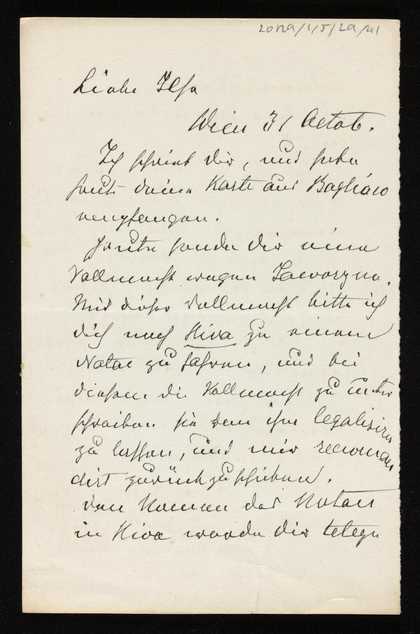 Liebe Ilse
Wien 31 Octob.
Ich schrieb Dir, und habe
heute deine Karte aus Bagliaco
empfangen.
Heute sende Dir eine
Vollmacht wegen Jaworzyna.
Mit dieser Vollmacht bitte ich
dich nach Riva zu einem
Notar zu fahren, und bei
diesem die Vollmacht zu unter
schreiben sie dem ihm legalisiren
zu lassen, und mir recoman
dirt zurückzuschicken.
den Namen des Notars
in Riva werde dir telegr